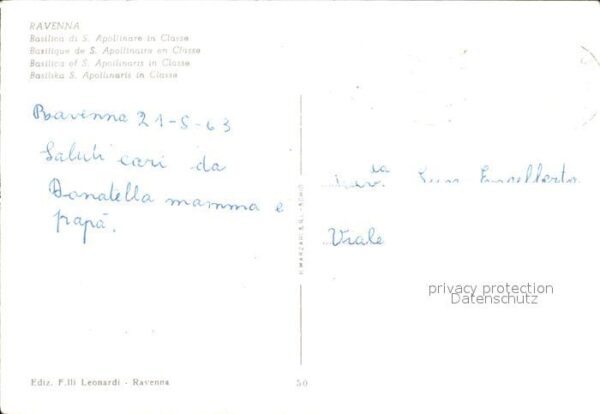 RAVENNA
Basilica di S. Apollinare in Classe
Basilique de S. Apollinaire en Classe
Basilica of S. Apollinaris in Classe
Basilika S. Apollinaris in Classe
Ravenna 21-5-63
Saluti cari da
Donatella mamma e
papà.
Viale
privacy protection
Datenschutz
Ediz. F.lli Leonardi - Ravenna
50